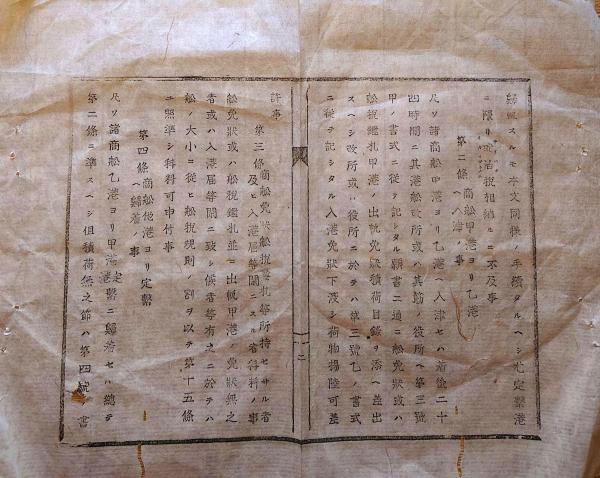 歸帆スルモ本文同樣ノ手續タルヘシ尤定繫港
ニ限リ碇泊税相納ルニ不及事
第二條 商舩甲港ヨリ乙港
ヘ入津ノ事
凡ソ諸商舩甲港ヨリ乙港ヘ入津セハ着後二十
四時間ニ其港舩改所或ハ其筋ノ役所ヘ第三號
甲ノ書式ニ從テ記シタル願書二通ニ舩免狀或ハ
舩税鑑札甲港ノ出帆免狀積荷目錄ヲ添ヘ差出
スヘシ改所或ハ役所ニ於テハ第三號乙ノ書式
ニ從テ記シタル入港免狀下渡シ荷物揚陸可差
許事
第三條 商舩免狀舩税鑑札等所持セサル者
及ヒ入港屆等閑ニスル者科料ノ事
舩免狀或ハ舩税鑑札並ニ出帆甲港ノ免狀無之
者或ハ入港屆等閑ニ致シ候者等有之ニ於テハ
舩ノ大小ニ從ヒ舩税規則ノ割ヲ以テ第十五條
ニ照準シ科料可申付事
第四條 商舩他港ヨリ定繫
ヘ歸着ノ事
凡ソ諸商舩乙港ヨリ甲港定繫ニ歸着セハ總テ
第二條ニ準スヘシ但積荷無之節ハ第四號ノ書
二